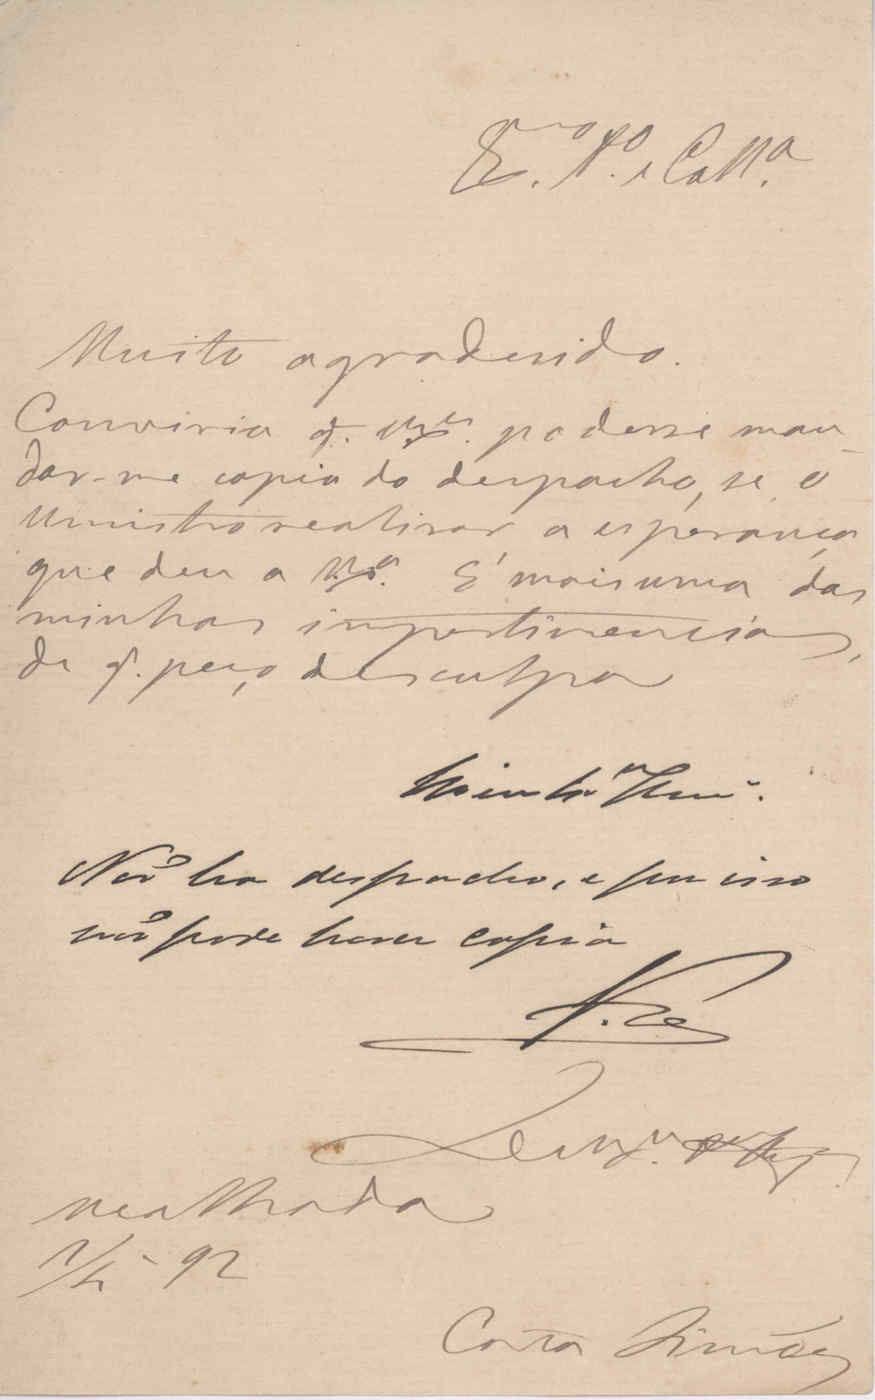 Ex.mo A.o e Coll.a
Muito agradecido.
Conviria q. V. Ex.a podesse man-
dar-me copia do despacho, se o
Ministro realisar a esperança
que deu a V. Ex.a. É mais uma das
minhas impertinencias,
de q. peço desculpa
Não ha despacho, e por isso
não pode haver copia
De V. Ex.a
Mealhada
92
Costa Simões